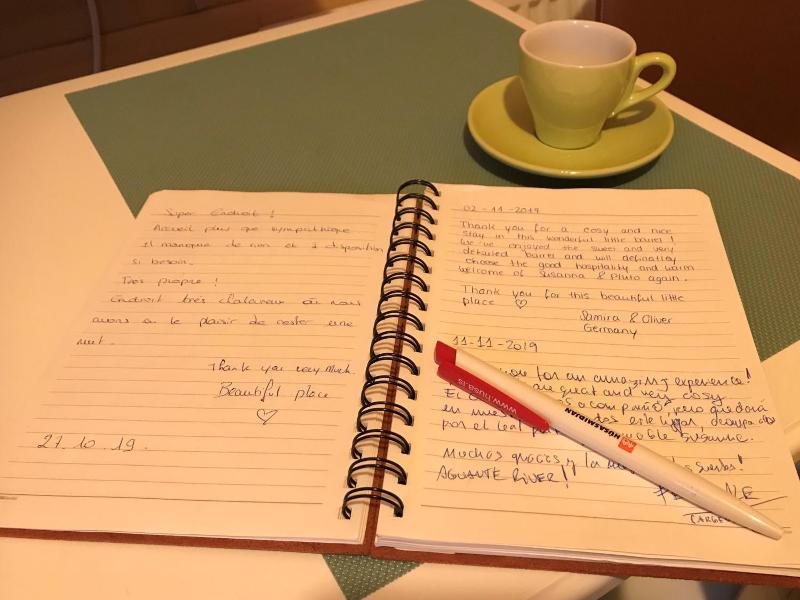 Super Endroit !
Accueil plus que sympathique
Il manque de rien et à disposition
si besoin.
Très propre !
Endroit très chaleureux où nous
avons eu le plaisir de rester une
nuit.
Thank you very much.
Beautiful place
♡
27.10.19.
02-11-2019
Thank you for a cosy and nice
stay in this wonderful little barrel!
We've enjoyed the sweet and very
detailed barrel and will definatley
choose the good hospitality and warm
welcome of Susanna & Pluto again.
Thank you for this beautiful little
place ♡
Samira & Oliver
Germany
11-11-2019
for an amazing experience!
are great and very cosy
El
en
este lugar,
por el leal
Susanne.
Muchas gracias y
AGUANTE RIVER!
www.husa.is
HÚSASMIÐJAN